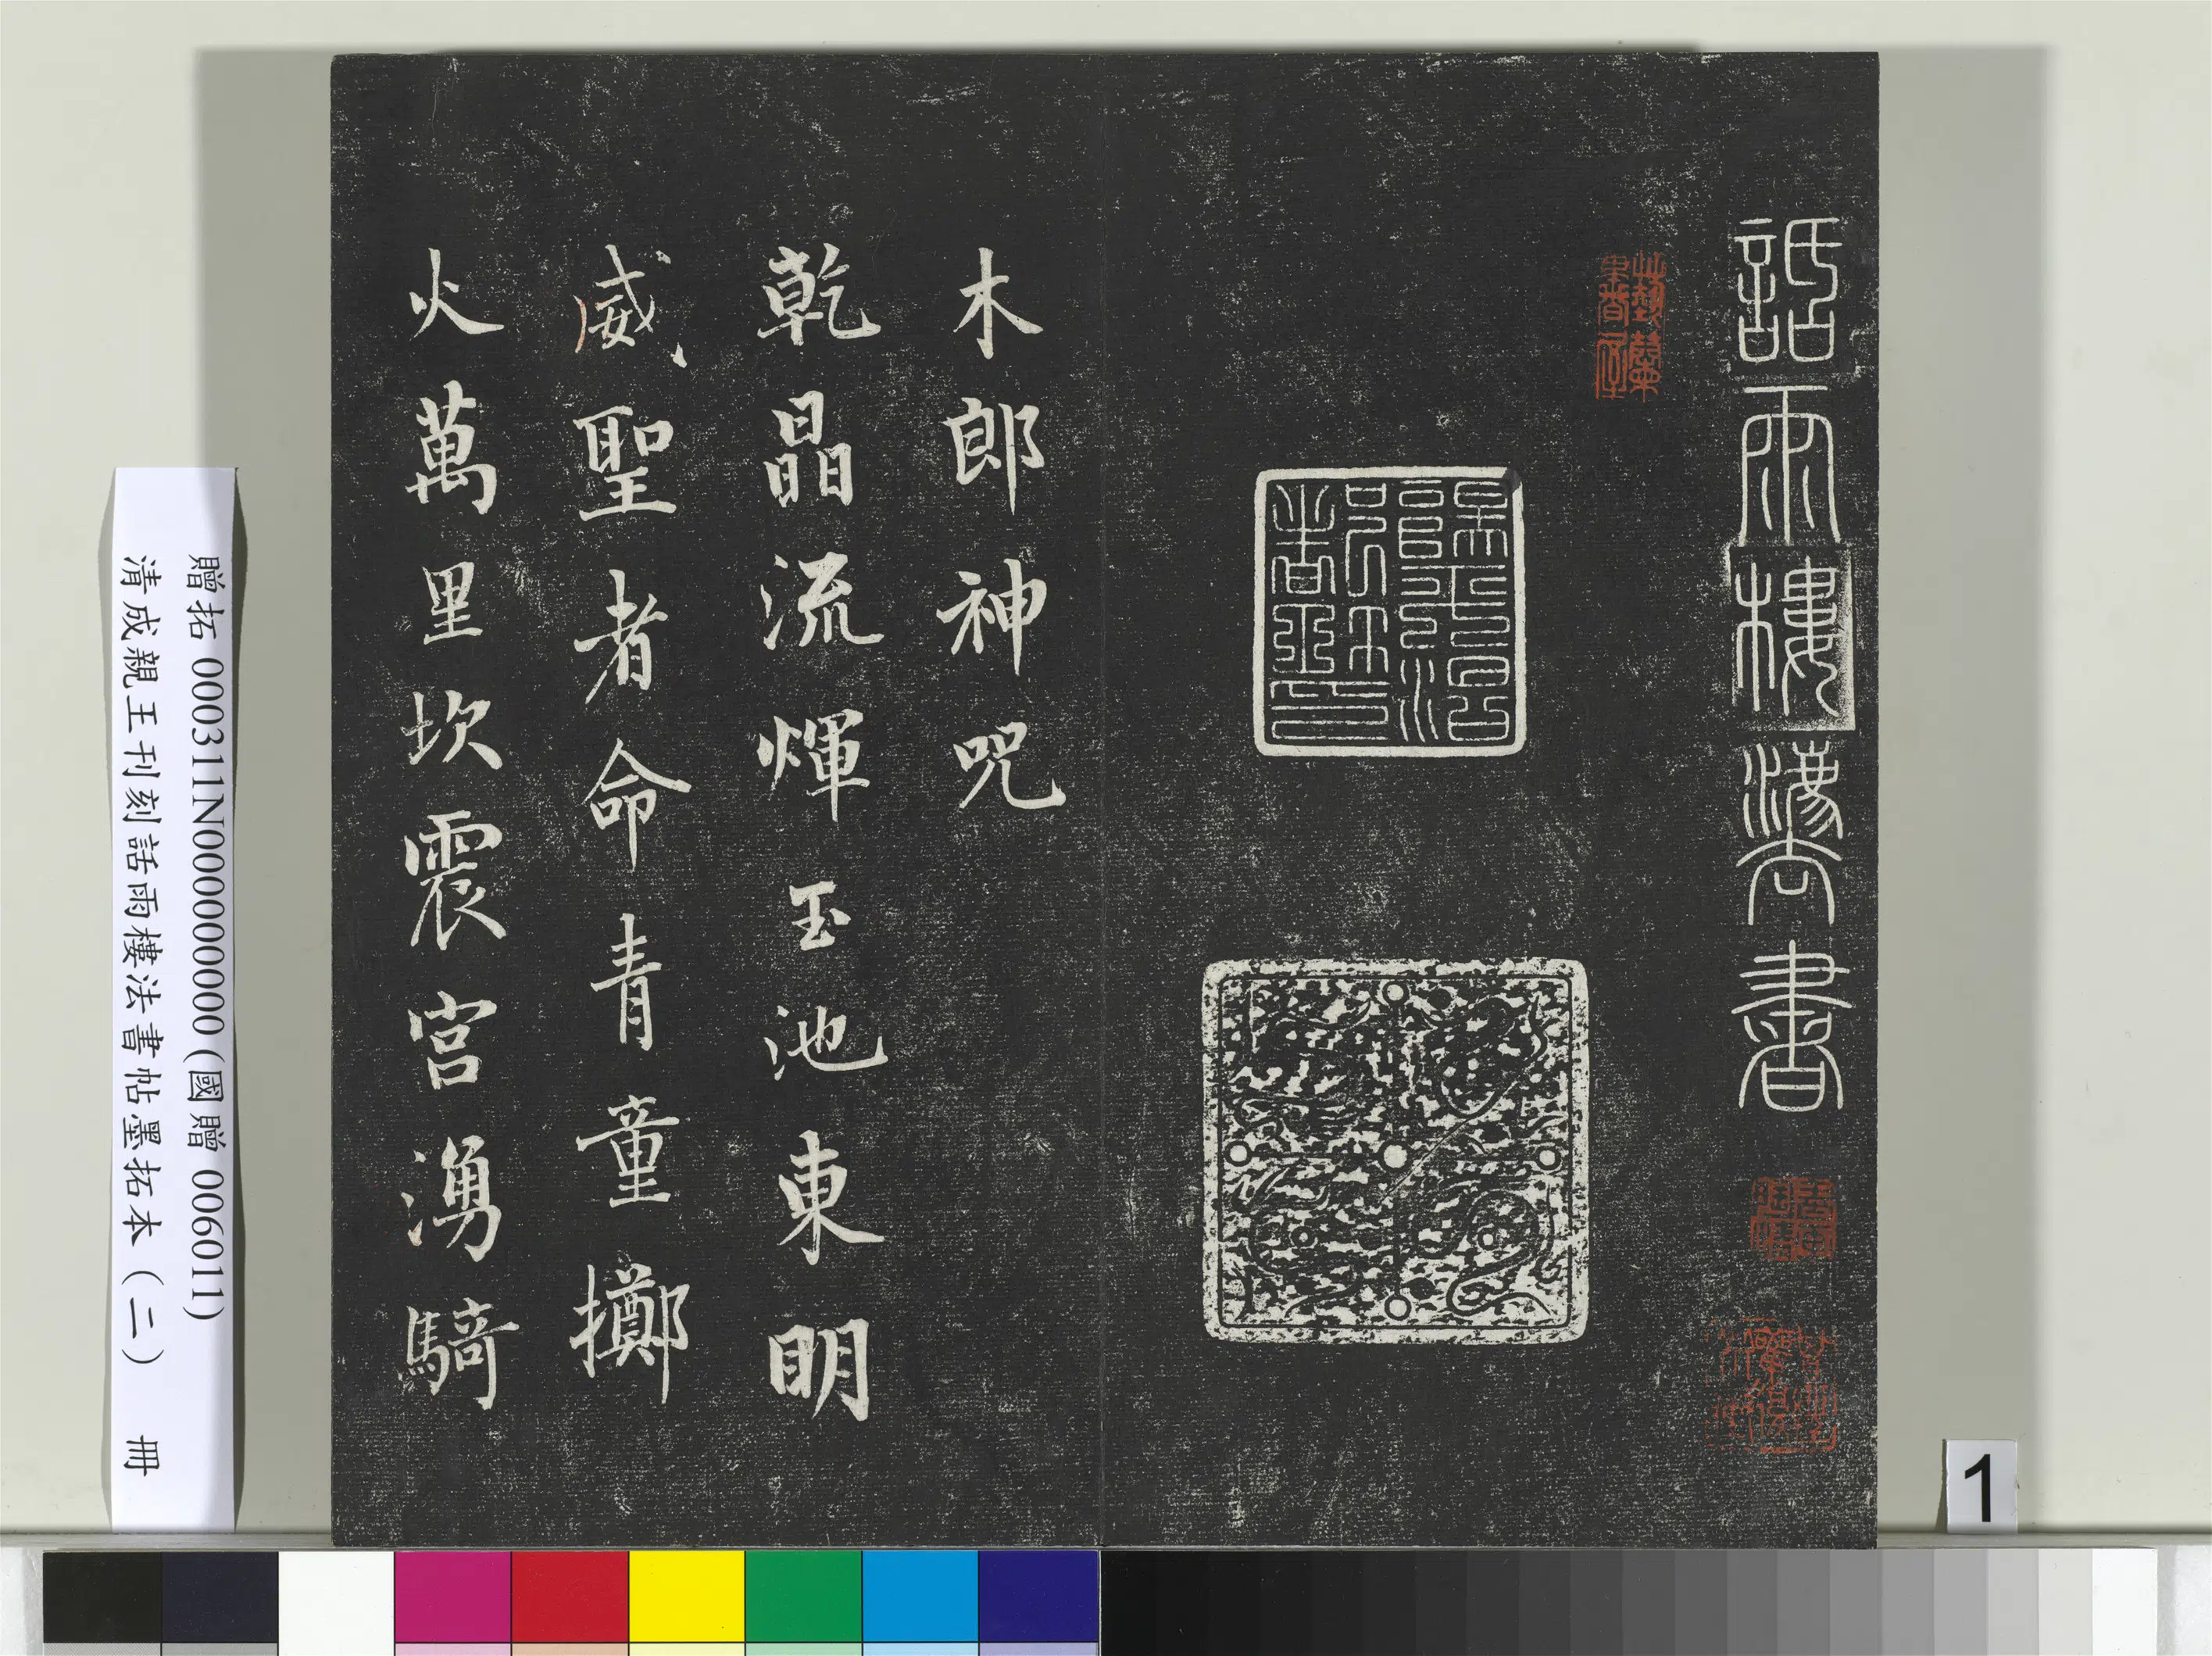 話雨樓法書
木郎神咒
乾晶流煇玉池東明
威聖者命青童擲
火萬里坎震宮湧騎
贈拓 000311N000000000(國贈 006011)
清成親王刊刻話雨樓法書帖墨拓本（二） 冊
1